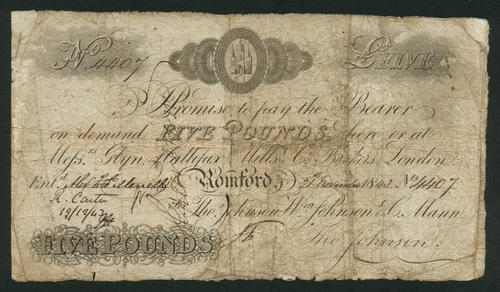 No. 4407 £FIVE
I Promise to pay the Bearer
on demand FIVE POUNDS here or at
Messrs Glyn, Hallifax, Mills & Co. Bankers London
Entd Romford December 1843 No. 4407
R. Carter Thos Johnson Wm Johnson & C. Mann.
19/12/43
FIVE POUNDS Thos Johnson